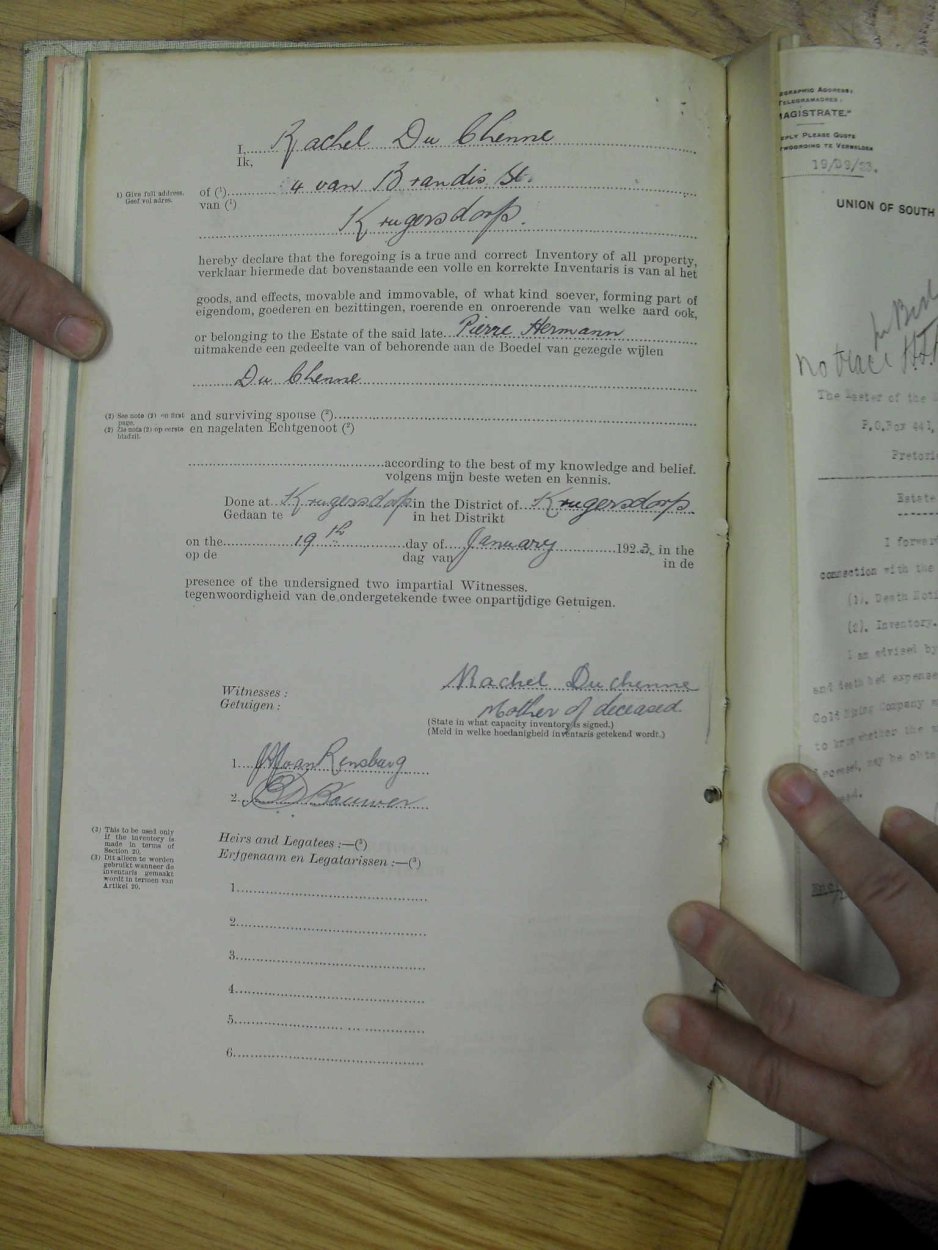 I, Rachel Du Chenne
Ik,
1) Give full address.
Geef vol adres.
of (1) 4 van Brandis St.
van (1)
Krugersdorp.
hereby declare that the foregoing is a true and correct Inventory of all property,
verklaar hiermede dat bovenstaande een volle en korrekte Inventaris is van al het
goods, and effects, movable and immovable, of what kind soever, forming part of
eigendom, goederen en bezittingen, roerende en onroerende van welke aard ook,
or belonging to the Estate of the said late Pierre Hermann
uitmakende een gedeelte van of behorende aan de Boedel van gezegde wijlen
Du Chenne
(2) See note (2) on first
page.
(2) Zie nota (2) op eerste
bladzij.
and surviving spouse (2)
en nagelaten Echtgenoot (2)
according to the best of my knowledge and belief.
volgens mijn beste weten en kennis.
Done at Krugersdorp in the District of Krugersdorp.
Gedaan te in het Distrikt
on the 19th day of January 1923, in the
op de dag van in de
presence of the undersigned two impartial Witnesses.
tegenwoordigheid van de ondergetekende twee onpartijdige Getuigen.
Rachel Duchenne
Witnesses :
Getuigen :
Mother of deceased
(State in what capacity inventory is signed.)
(Meld in welke hoedanigheid inventaris getekend wordt.)
1. van Rensburg
2. Bouwer
(3) This to be used only
if the inventory is
made in terms of
Section 20.
(3) Dit alleen te worden
gebruikt wanneer de
inventaris gemaakt
wordt in termen van
Artikel 20.
Heirs and Legatees :—(3)
Erfgenaam en Legatarissen :—(3)
1.
2.
3.
4.
5.
6.
GRAPHIC ADDRESS:
TELEGRAMADRES:
MAGISTRATE."
EPLY PLEASE QUOTE
TWOORDING TE VERMELDEN
19/39/23.
UNION OF SOUTH
No trace
The Master of the
P.O.Box 441,
Pretori
Estate
I forward
connection with the
(1). Death Noti
(2). Inventory.
I am advised by
and death bed expense
Gold Mining Company
to know whether the
deceased, may be obta